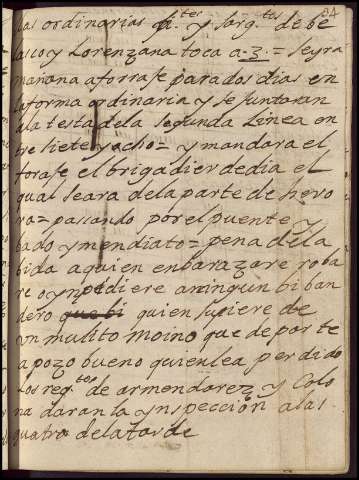 84
las ordinarias ... y sarg.tos de be
lasco y Lorenzana toca a-3.= se yra
mañana a forrase para dos dias en
la forma ordinaria y se juntaran
a la testa de la segunda Linea en
tre siete y ocho= y mandara el
forase el brigadier de dia el
qual seara de la parte de hero
ra= pasando por el puente y
bado ymendiato= pena de la
bida a quien enbarazare roba
re o ynpidiere aningun biban
dero que bi quien supiere de
un mulito moino que de por te
a pozo bueno quien lea perdido
Los reg.tos de armendarez y Colo
na daran la ynspección a las
quatro de la tarde